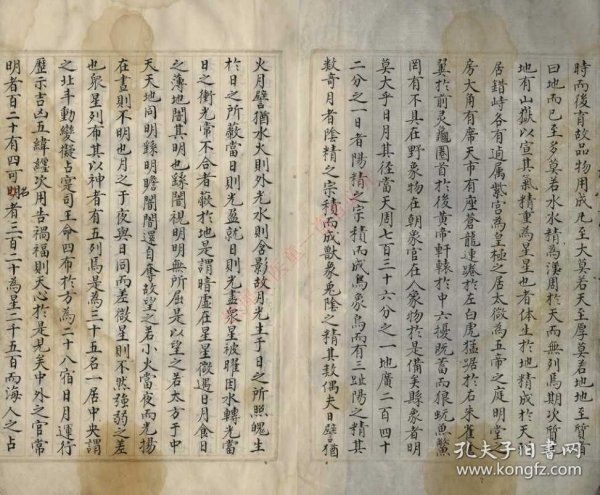 時而後育故品物用成凡至大莫若天至厚莫若地地至質者
曰地而已至多莫若水水精為漢周於天而無列焉期次質
地有山嶽以宣其氣精重為星星也者体生於地精成於天列
居錯峙各有逌属紫宮為皇極之居太微為五帝之庭明堂之
房大角有席天市有座蒼龍連蜷於左白虎猛踞於右朱雀奮
翼於前灵龜圈首於後黄帝軒轅於中六擾既畜而狼蚖魚鱉
罔有不具在野象物在朝象官在人象物於是備矣縣象著明
莫大乎日月其徑當天周七百三十六分之一地廣二百四十
二分之一日者陽精之宗積而成鳥象烏而有三趾陽之精其
数奇月者陰精之宗積而成獣象兎陰之精其数偶夫日譬猶
火月譬猶水火則外光水則含影故月光生于日之所照魄生
於日之所蔽當日則光盈就日則光盡衆星被曜因水轉光當
日之衝光常不合者蔽於地是謂暗虚在星星微遇月月食日
之薄地闇其明也繇闇視明明無所屈是以望之若大方于中
天天地同明繇明瞻闇闇還自奪故望之若小火當夜而光揚
在晝則不明也月之于夜與日同而差微星則不然強弱之差
也衆星列布其以神者有五列焉是為三十五名一居中央謂
之北斗動變擬占寔司王命四布於方為二十八宿日月運行
歷示吉凶五緯經次用告禍福則天心於是見矣中外之官常
明者百二十有四可名者三百二十為星二千五百而海人之占
孔夫子旧書网
www.kongfz.com